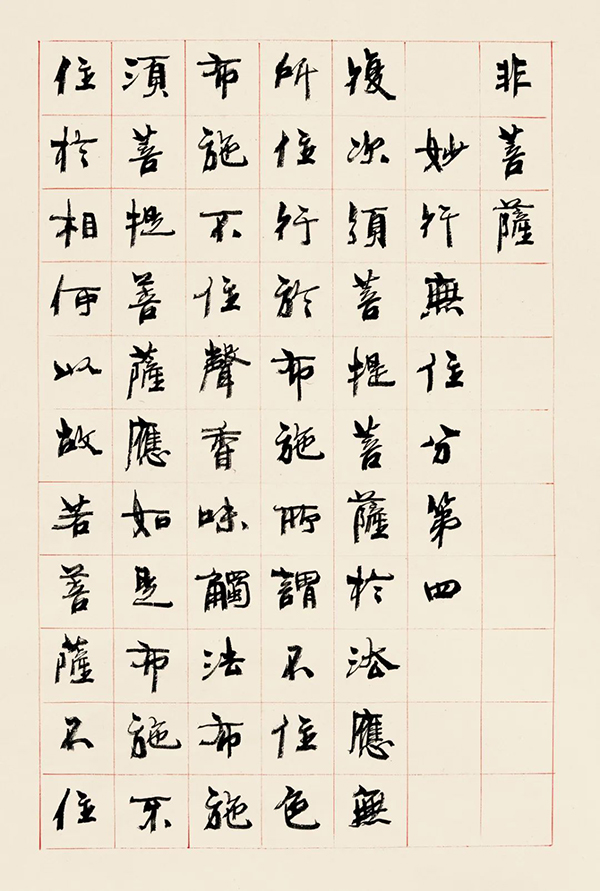 非菩薩
妙行無住分第四
復次須菩提菩薩於法應無
所住行於布施所謂不住色
布施不住聲香味觸法布施
須菩提菩薩應如是布施不
住於相何以故若菩薩不住